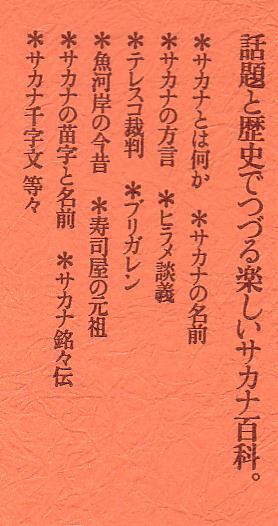 話題と歴史でつづる楽しいサカナ百科。
＊サカナとは何か　＊サカナの名前
＊サカナの方言　＊ヒラメ談義
＊テレスコ裁判　＊ブリガレン
＊魚河岸の今昔　＊寿司屋の元祖
＊サカナの苗字と名前　＊サカナ銘々伝
＊サカナ千字文 等々